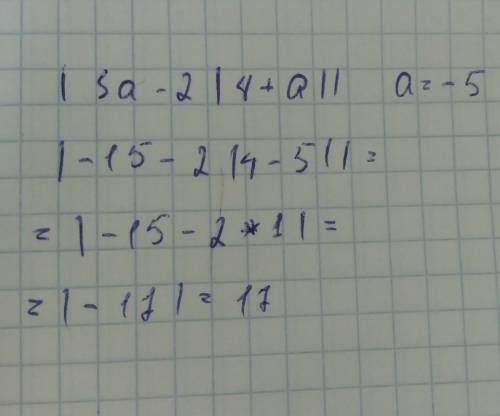 | 3a - 2 | 4 + a || a = - 5
| - 15 - 2 | 4 - 5 || =
= | - 15 - 2 * 1 | =
= | - 17 | = 17